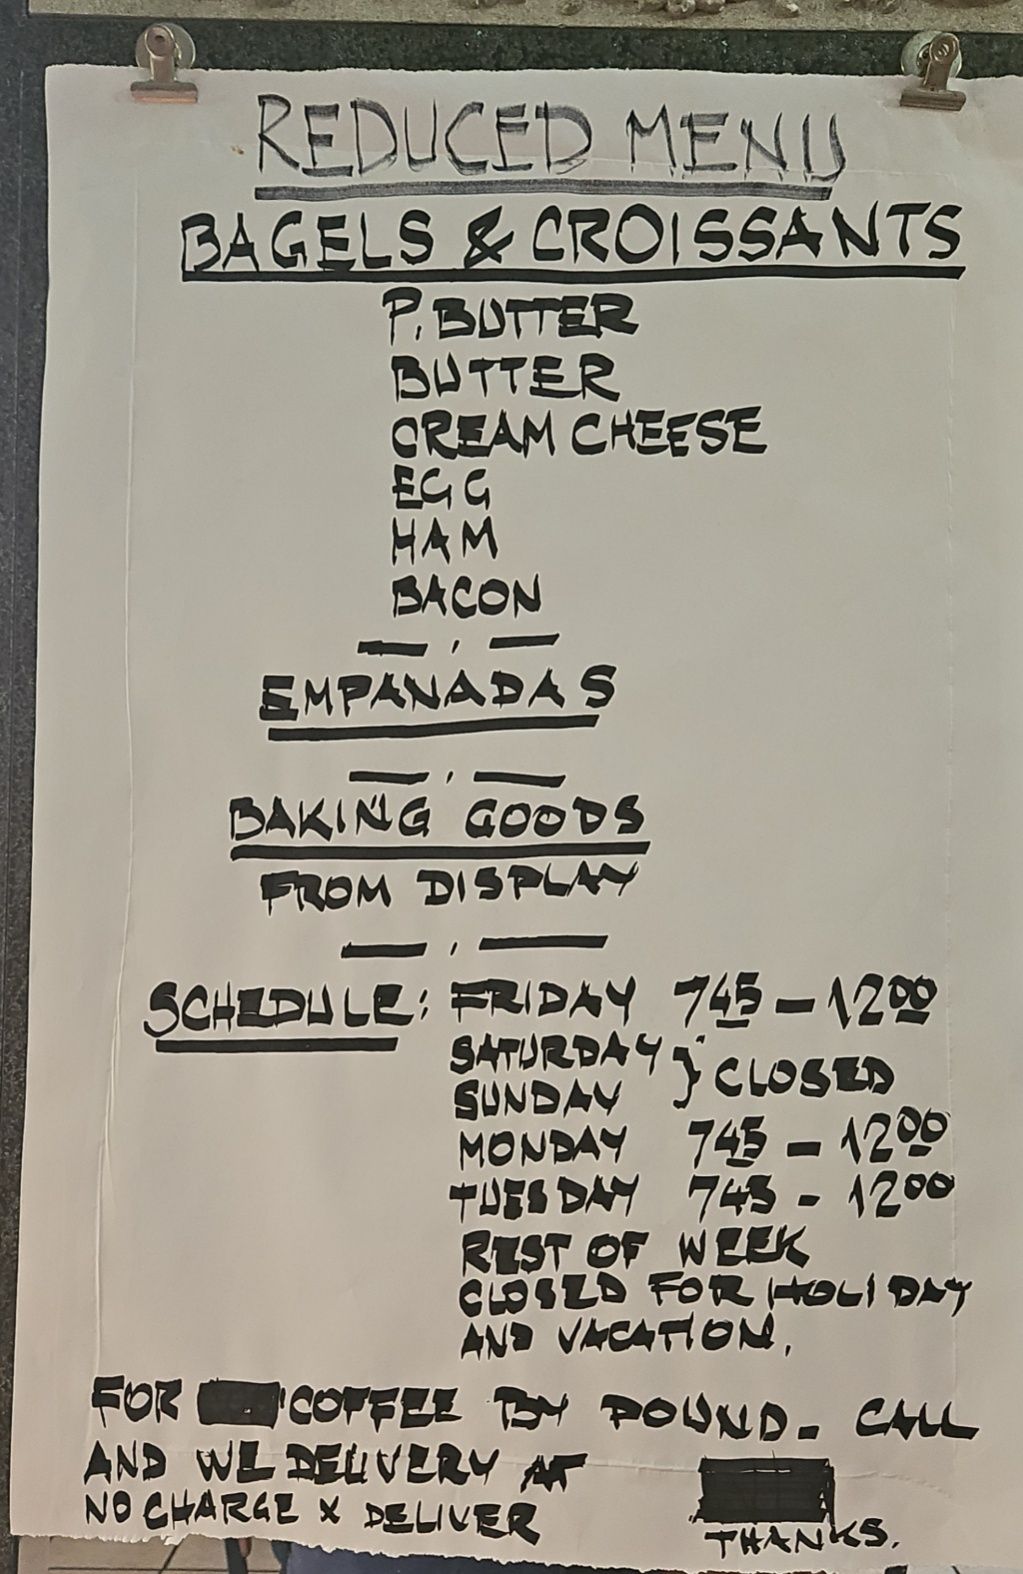 REDUCED MENU
BAGELS & CROISSANTS
P. BUTTER
BUTTER
CREAM CHEESE
EGG
HAM
BACON
EMPANADAS
BAKING GOODS
FROM DISPLAY
SCHEDULE: FRIDAY 745 – 1200
SATURDAY } CLOSED
SUNDAY
MONDAY 745 – 1200
TUESDAY 745 - 1200
REST OF WEEK
CLOSED FOR HOLIDAY
AND VACATION.
FOR COFFEE BY POUND. CALL
AND WE DELIVERY AT
NO CHARGE X DELIVER
THANKS.